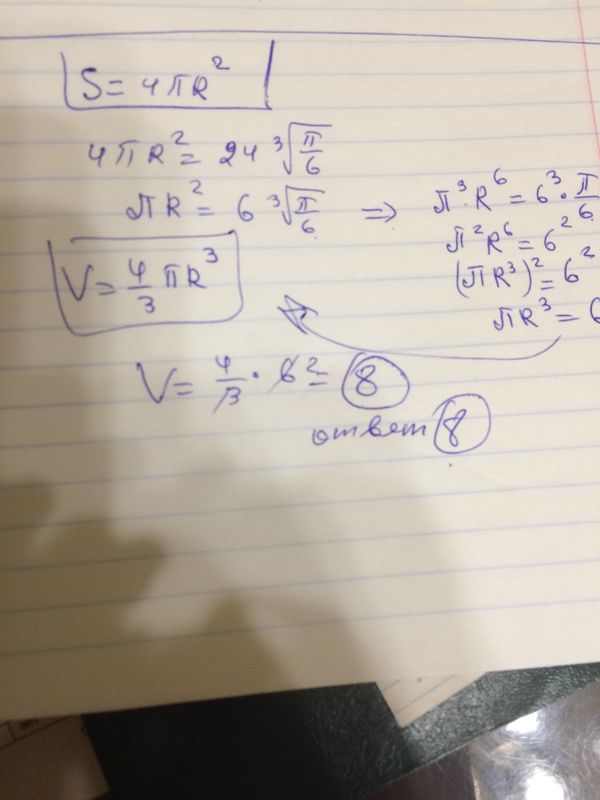 S = 4πR²
4πR² = 24 ∛(π/6)
πR² = 6 ∛(π/6) ⇒ π³·R⁶ = 6³·π/6
π²R⁶ = 6²
(πR³)² = 6²
πR³ = 6
V = 4/3 πR³
V = 4/3 · 6² = 8
ответ 8